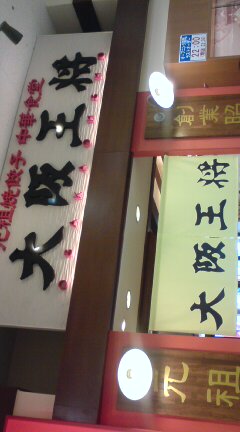 元祖焼餃子 中華食堂
大阪王将
大阪王将
元祖
創業昭
22:00